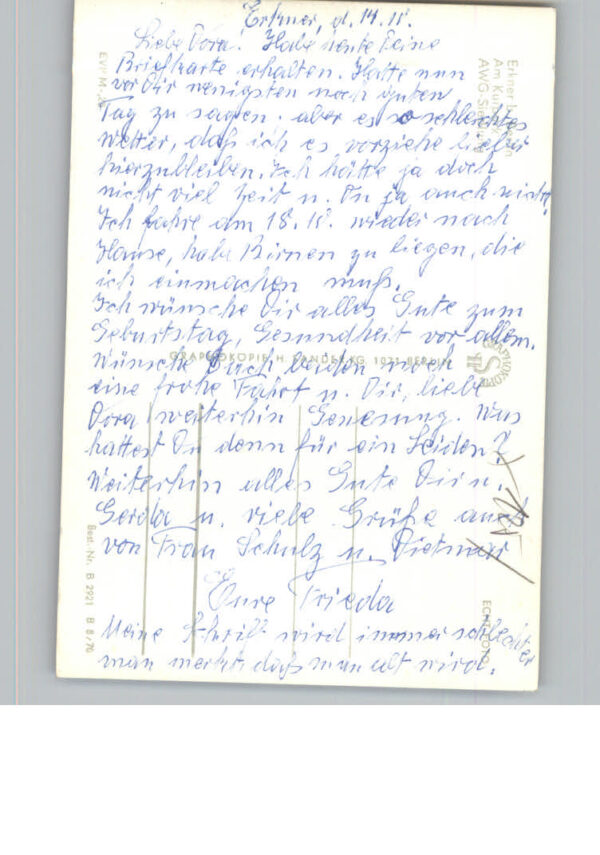 Erkner, d. 14.10.
Liebe Dora! Habe heute Deine
Briefkarte erhalten. Hatte nun
vor Dir wenigsten noch guten
Tag zu sagen. aber es so schlechtes
Wetter, daß ich es vorziehe lieber
hierzubleiben. Ich hätte ja doch
nicht viel Zeit u. Du ja auch nicht.
Ich fahre am 18.10. wieder nach
Hause, habe Birnen zu liegen, die
ich einmachen muß.
Ich wünsche Dir alles Gute zum
Geburtstag, Gesundheit vor allem.
Wünsche Euch beiden noch
eine frohe Fahrt u. Dir, liebe
Dora weiterhin Genesung. Was
hattest Du denn für ein Leiden?
Weiterhin alles Gute Dir u.
Gerda u. viele Grüße auch
von Frau Schulz u. Dietmar
Eure Frieda
Meine Schrift wird immer schlechter
man merkt daß man alt wird.
Erkner
Am
AWG-
GRAPHOKOPIE H. SANDER KG, 1071 BERLIN
GRAPHOKOPIE
ECHT FOTO
Best.-Nr. B 2921 B 8/70